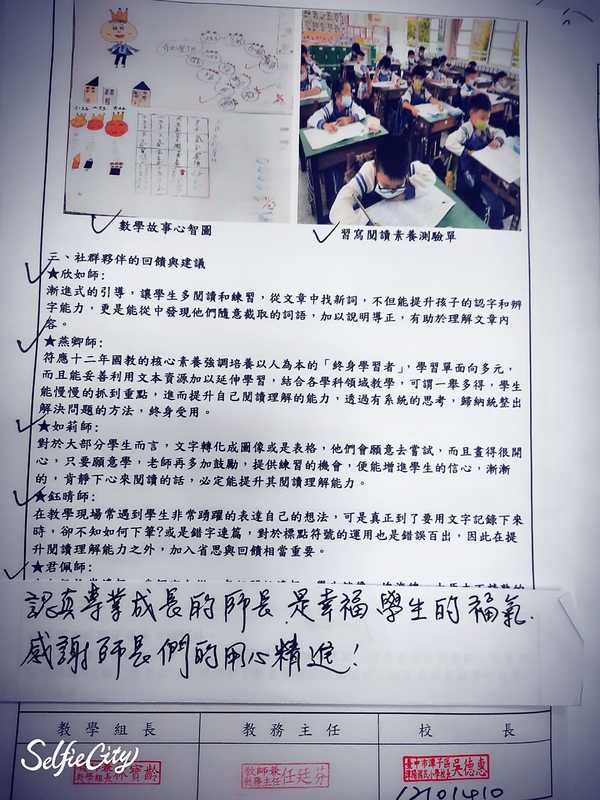 數學故事心智圖
習寫閱讀素養測驗單
三、社群夥伴的回饋與建議
★欣如師:
漸進式的引導，讓學生多閱讀和練習，從文章中找新詞，不但能提升孩子的認字和辨
字能力，更是能從中發現他們隨意截取的詞語，加以說明導正，有助於理解文章內
容。
★燕卿師:
符應十二年國教的核心素養強調培養以人為本的「終身學習者」，學習單面向多元，
而且能妥善利用文本資源加以延伸學習，結合各學科領域教學，可謂一舉多得，學生
能慢慢的抓到重點，進而提升自己閱讀理解的能力，透過有系統的思考，歸納統整出
解決問題的方法，終身受用。
★如莉師:
對於大部分學生而言，文字轉化成圖像或是表格，他們會願意去嘗試，而且畫得很開
心，只要願意學，老師再多加鼓勵，提供練習的機會，便能增進學生的信心，漸漸
的，肯靜下心來閱讀的話，必定能提升其閱讀理解能力。
★鈺晴師:
在教學現場常遇到學生非常踴躍的表達自己的想法，可是真正到了要用文字記錄下來
時，卻不知如何下筆?或是錯字連篇，對於標點符號的運用也是錯誤百出，因此在提
升閱讀理解能力之外，加入省思與回饋相當重要。
★君佩師:
認真專業成長的師長,是幸福學生的福氣.
感謝師長們的用心精進!
教學組長 教務主任 校長
教學組長林寶齡 教師兼教務主任任廷芬 臺中市潭子區 國民小學校長吳德惠
12101410
SelfieCity